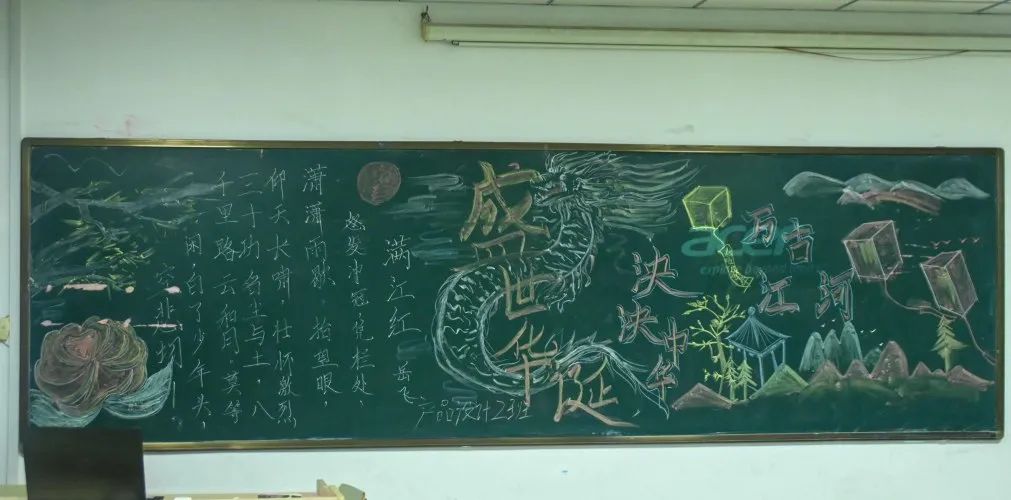 满江红 岳飞
怒发冲冠,凭栏处、
潇潇雨歇。抬望眼
仰天长啸,壮怀激烈
三十功名尘与土,八
千里路云和月。莫等
闲、白了少年头,
空悲切!
盛世华诞
产品设计
泱泱中华
万古江河
acer